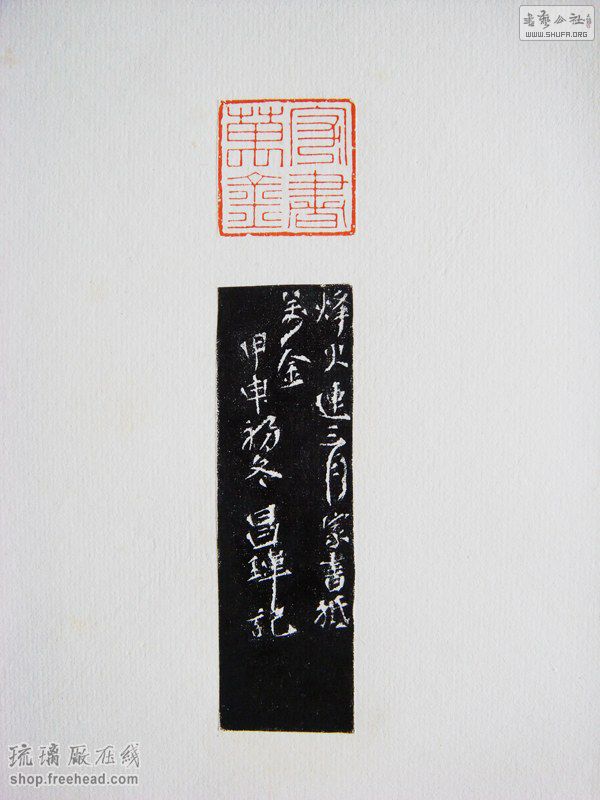 書藝公社
WWW.SHUFA.ORG
家書
萬金
烽火連三月家書抵
萬金
甲申初冬昌 記
琉璃廠在线
shop.freehead.com